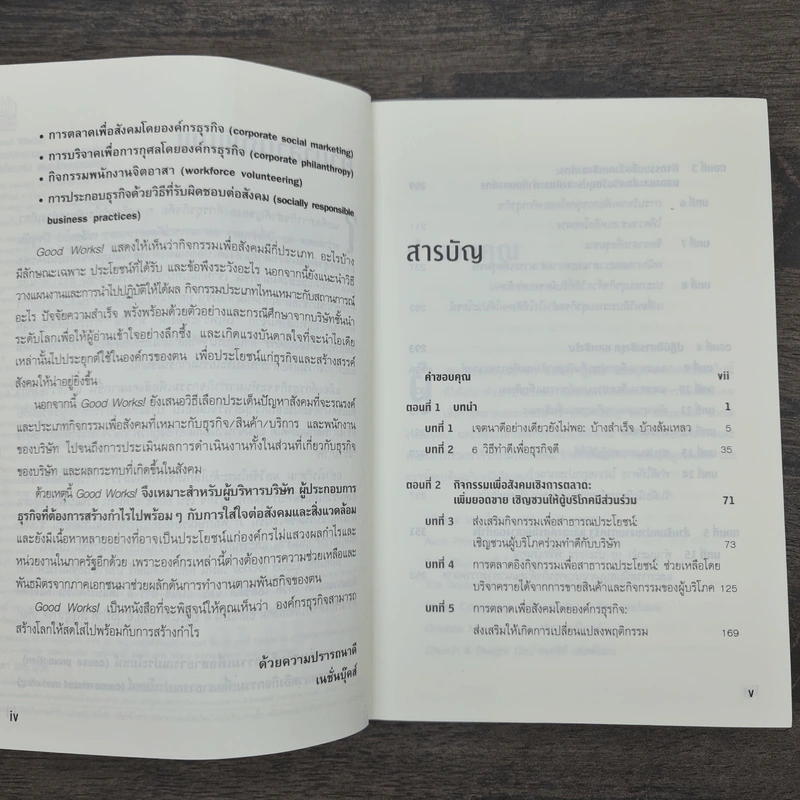 • การตลาดเพื่อสังคมโดยองค์กรธุรกิจ (corporate social marketing)
• การบริจาคเพื่อการกุศลโดยองค์กรธุรกิจ (corporate philanthropy)
• กิจกรรมพนักงานจิตอาสา (workforce volunteering)
• การประกอบธุรกิจด้วยวิธีที่รับผิดชอบต่อสังคม (socially responsible
business practices)
Good Works! แสดงให้เห็นว่ากิจกรรมเพื่อสังคมมีกี่ประเภท อะไรบ้าง
มีลักษณะเฉพาะ ประโยชน์ที่ได้รับ และข้อพึงระวังอะไร นอกจากนี้ยังแนะนำวิธี
วางแผนงานและการนำไปปฏิบัติให้ได้ผล กิจกรรมประเภทไหนเหมาะกับสถานการณ์
อะไร ปัจจัยความสำเร็จ พรั่งพร้อมด้วยตัวอย่างและกรณีศึกษาจากบริษัทชั้นนำ
ระดับโลกเพื่อให้ผู้อ่านเข้าใจอย่างลึกซึ้ง และเกิดแรงบันดาลใจที่จะนำไอเดีย
เหล่านั้นไปประยุกต์ใช้ในองค์กรของตน เพื่อประโยชน์แก่ธุรกิจและสร้างสรรค์
สังคมให้น่าอยู่ยิ่งขึ้น
นอกจากนี้ Good Works! ยังเสนอวิธีเลือกประเด็นปัญหาสังคมที่จะรณรงค์
และประเภทกิจกรรมเพื่อสังคมที่เหมาะกับธุรกิจ/สินค้า/บริการ และพนักงาน
ของบริษัท ไปจนถึงการประเมินผลการดำเนินงานทั้งในส่วนที่เกี่ยวกับธุรกิจ
ของบริษัท และผลกระทบที่เกิดขึ้นในสังคม
ด้วยเหตุนี้ Good Works! จึงเหมาะสำหรับผู้บริหารบริษัท ผู้ประกอบการ
ธุรกิจที่ต้องการสร้างกำไรไปพร้อม ๆ กับการใส่ใจต่อสังคมและสิ่งแวดล้อม
และยังมีเนื้อหาหลายอย่างที่อาจเป็นประโยชน์แก่องค์กรไม่แสวงผลกำไรและ
หน่วยงานในภาครัฐอีกด้วย เพราะองค์กรเหล่านี้ต่างต้องการความช่วยเหลือและ
พันธมิตรจากภาคเอกชนมาช่วยผลักดันการทำงานตามพันธกิจของตน
Good Works! เป็นหนังสือที่จะพิสูจน์ให้คุณเห็นว่า องค์กรธุรกิจสามารถ
สร้างโลกให้สดใสไปพร้อมกับการสร้างกำไร
ด้วยความปรารถนาดี
เนชั่นบุ๊คส์
iv
สารบัญ
คำขอบคุณ vii
ตอนที่ 1 บทนำ 1
บทที่ 1 เจตนาดีอย่างเดียวยังไม่พอ: บ้างสำเร็จ บ้างล้มเหลว 5
บทที่ 2 6 วิธีทำดีเพื่อธุรกิจดี 35
ตอนที่ 2 กิจกรรมเพื่อสังคมเชิงการตลาด:
เพิ่มยอดขาย เชิญชวนให้ผู้บริโภคมีส่วนร่วม 71
บทที่ 3 ส่งเสริมกิจกรรมเพื่อสาธารณประโยชน์:
เชิญชวนผู้บริโภคร่วมทำดีกับบริษัท 73
บทที่ 4 การตลาดอิงกิจกรรมเพื่อสาธารณประโยชน์: ช่วยเหลือโดย
บริจาครายได้จากการขายสินค้าและกิจกรรมของผู้บริโภค 125
บทที่ 5 การตลาดเพื่อสังคมโดยองค์กรธุรกิจ:
ส่งเสริมให้เกิดการเปลี่ยนแปลงพฤติกรรม 169
v